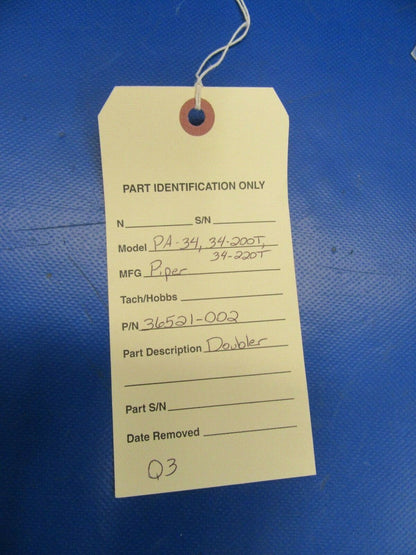 PART IDENTIFICATION ONLY
N S/N
Model PA-34, 34-200T,
34-220T
MFG Piper
Tach/Hobbs
P/N 36521-002
Part Description Doubler
Part S/N
Date Removed
Q3